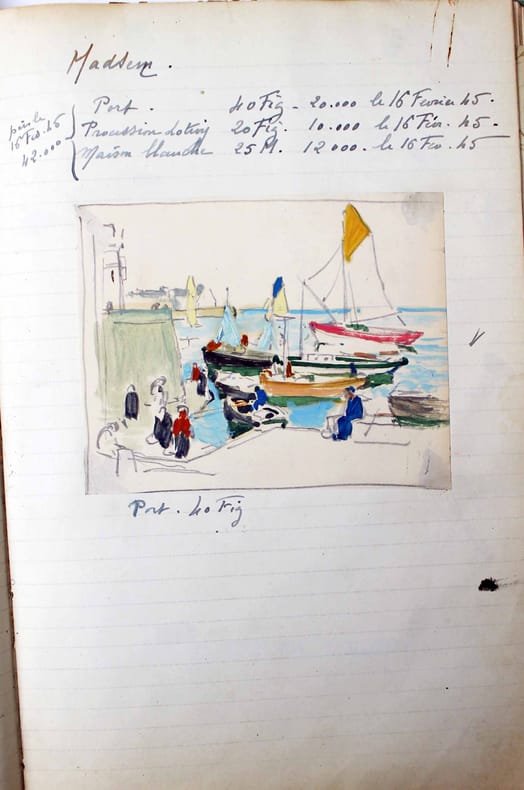 Madsen.
Port. 40 Fig - 20.000 le 16 Fevrier 45.
Procession 20 Fig. 10.000 le 16 Fév. 45.
Maison blanche 25 M. 12 000. le 16 Fev. 45
16 Fev. 45
42.000
Port. 40 Fig